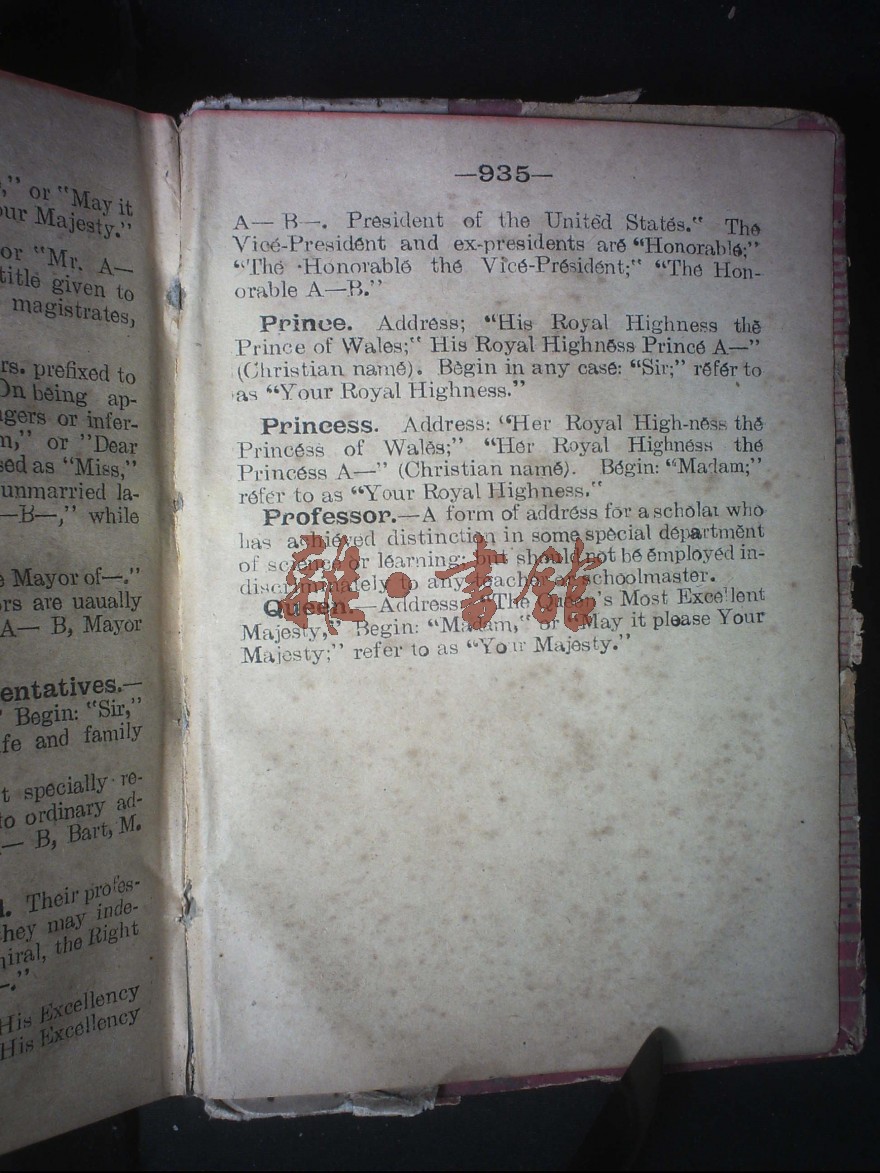 ," or "May it
our Majesty."
or "Mr. A—
title given to
magistrates,
rs. prefixed to
On being ap-
agers or infer-
m," or "Dear
sed as "Miss,"
unmarried la-
—B—," while
e Mayor of—."
ors are uaually
A— B, Mayor
entatives.—
" Begin: "Sir,"
ife and family
t spécially re-
to ordinary ad-
— B, Bart, M.
l. Their profes-
they may inde-
miral, the Right
—."
His Excellency
His Excéllency
—935—
A— B—. Président of the Unitéd Statés." Thé
Vicé-Présidént and ex-presidents aré "Honorablé;"
"Thé Honorablé thé Vicé-Présidént;" "The Hon-
orable A—B."
Prince. Addréss; "His Royal Highness thé
Princé of Walés;" His Royal Highnéss Princé A—"
(Christian namé). Bégin in any casé: "Sir;" référ to
as "Your Royal Highness."
Princess. Address: "Hér Royal High-néss thé
Princéss of Walés;" "Hér Royal Highnéss thé
Princéss A—" (Christian namé). Bégin: "Madam;"
référ to as "Your Royal Highness."
Professor.—A form of addréss for a scholar who
has achiéved distinction in somé spécial départmént
of sciencé or léarning; but should not bé émployéd in-
discriminately to any teacher or schoolmaster.
Queen.—Address: "The Queen's Most Excellent
Majésty," Begin: "Madam," or "May it please Your
Majesty;" refer to as "Your Majesty."
雅·書館